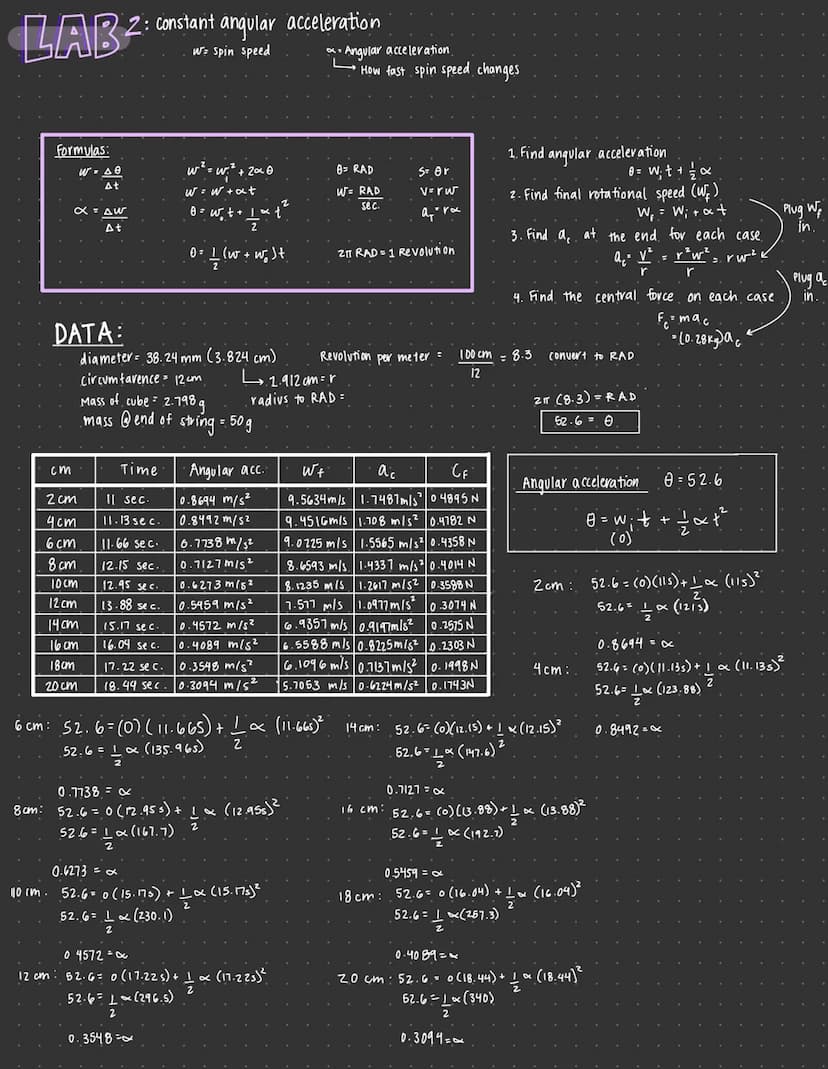 LAB 2: constant angular acceleration
w= spin speed
α = Angular acceleration
↳ How fast spin speed changes
Formulas:
w = Δθ/Δt
α = Δw/Δt
w² = wᵢ² + 2αθ
w = w + αt
θ = w₀t + 1/2 αt²
θ = 1/2 (w + w₀)t
θ = RAD
w = RAD/sec.
2π RAD = 1 Revolution
s = θr
v = rw
a_T = rα
1. Find angular acceleration
θ = wᵢt + 1/2 α
2. Find final rotational speed (w_f)
w_f = wᵢ + αt
Plug w_f in.
3. Find a_c at the end for each case
a_c = v²/r = r²w²/r = rw²
Plug a_c in.
4. Find the central force on each case
F_c = ma_c
= (0.28kg)a_c
DATA:
diameter = 38.24 mm (3.824 cm)
↳ 1.912cm = r
circumfarence = 12cm
radius to RAD =
Mass of cube = 2.798g
mass @ end of string = 50g
Revolution per meter = 100cm/12 = 8.3 convert to RAD
2π (8.3) = RAD
52.6 = θ
cm Time Angular acc. w_f a_c C_F
2cm 11 sec. 0.8694 m/s² 9.5634m/s 1.7487m/s² 0.4895N
4cm 11.13sec. 0.8492m/s² 9.4516m/s 1.708 m/s² 0.4782 N
6cm 11.66 sec. 0.7738 m/s² 9.0225 m/s 1.5565 m/s² 0.4358N
8cm 12.15 sec. 0.7127m/s² 8.6593 m/s 1.4337 m/s² 0.4014N
10cm 12.95 sec. 0.6273 m/s² 8.1235 m/s 1.2617 m/s² 0.3588N
12cm 13.88 sec. 0.5459 m/s² 7.577 m/s 1.0977m/s² 0.3074N
14cm 15.17 sec. 0.4572 m/s² 6.9357m/s 0.9197m/s² 0.2575N
16cm 16.04 sec. 0.4089 m/s² 6.5588 m/s 0.8225m/s² 0.2303N
18cm 17.22 sec. 0.3548 m/s² 6.1096 m/s 0.7137m/s² 0.1998N
20cm 18.44 sec. 0.3094 m/s² 5.7053 m/s 0.6224m/s² 0.1743N
Angular acceleration θ = 52.6
θ = wᵢt + 1/2 αt²
(0)
2cm: 52.6 = (0)(11s) + 1/2 α (11s)²
52.6 = 1/2 α (121s)
0.8694 = α
4cm: 52.6 = (0)(11.13s) + 1/2 α (11.13s)²
52.6 = 1/2 α (123.88)
0.8492 = α
6cm: 52.6 = (0)(11.66s) + 1/2 α (11.66s)²
52.6 = 1/2 α (135.96s)
0.7738 = α
8cm: 52.6 = 0(12.95s) + 1/2 α (12.95s)²
52.6 = 1/2 α (167.7)
0.6273 = α
10cm. 52.6 = 0(15.17s) + 1/2 α (15.17s)²
52.6 = 1/2 α (230.1)
0.4572 = α
12cm: 52.6 = 0(17.22s) + 1/2 α (17.22s)²
52.6 = 1/2 α (296.5)
0.3548 = α
14cm: 52.6 = (0)(12.15) + 1/2 α (12.15)²
52.6 = 1/2 α (147.6)
0.7127 = α
16cm: 52.6 = (0)(13.88) + 1/2 α (13.88)²
52.6 = 1/2 α (192.7)
0.5459 = α
18cm: 52.6 = 0(16.04) + 1/2 α (16.04)²
52.6 = 1/2 α (257.3)
0.4089 = α
20cm: 52.6 = 0(18.44) + 1/2 α (18.44)²
52.6 = 1/2 α (340)
0.3094 = α